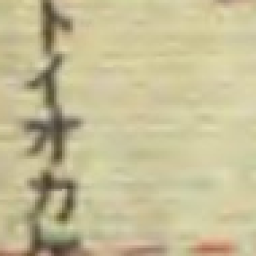 トイオカ